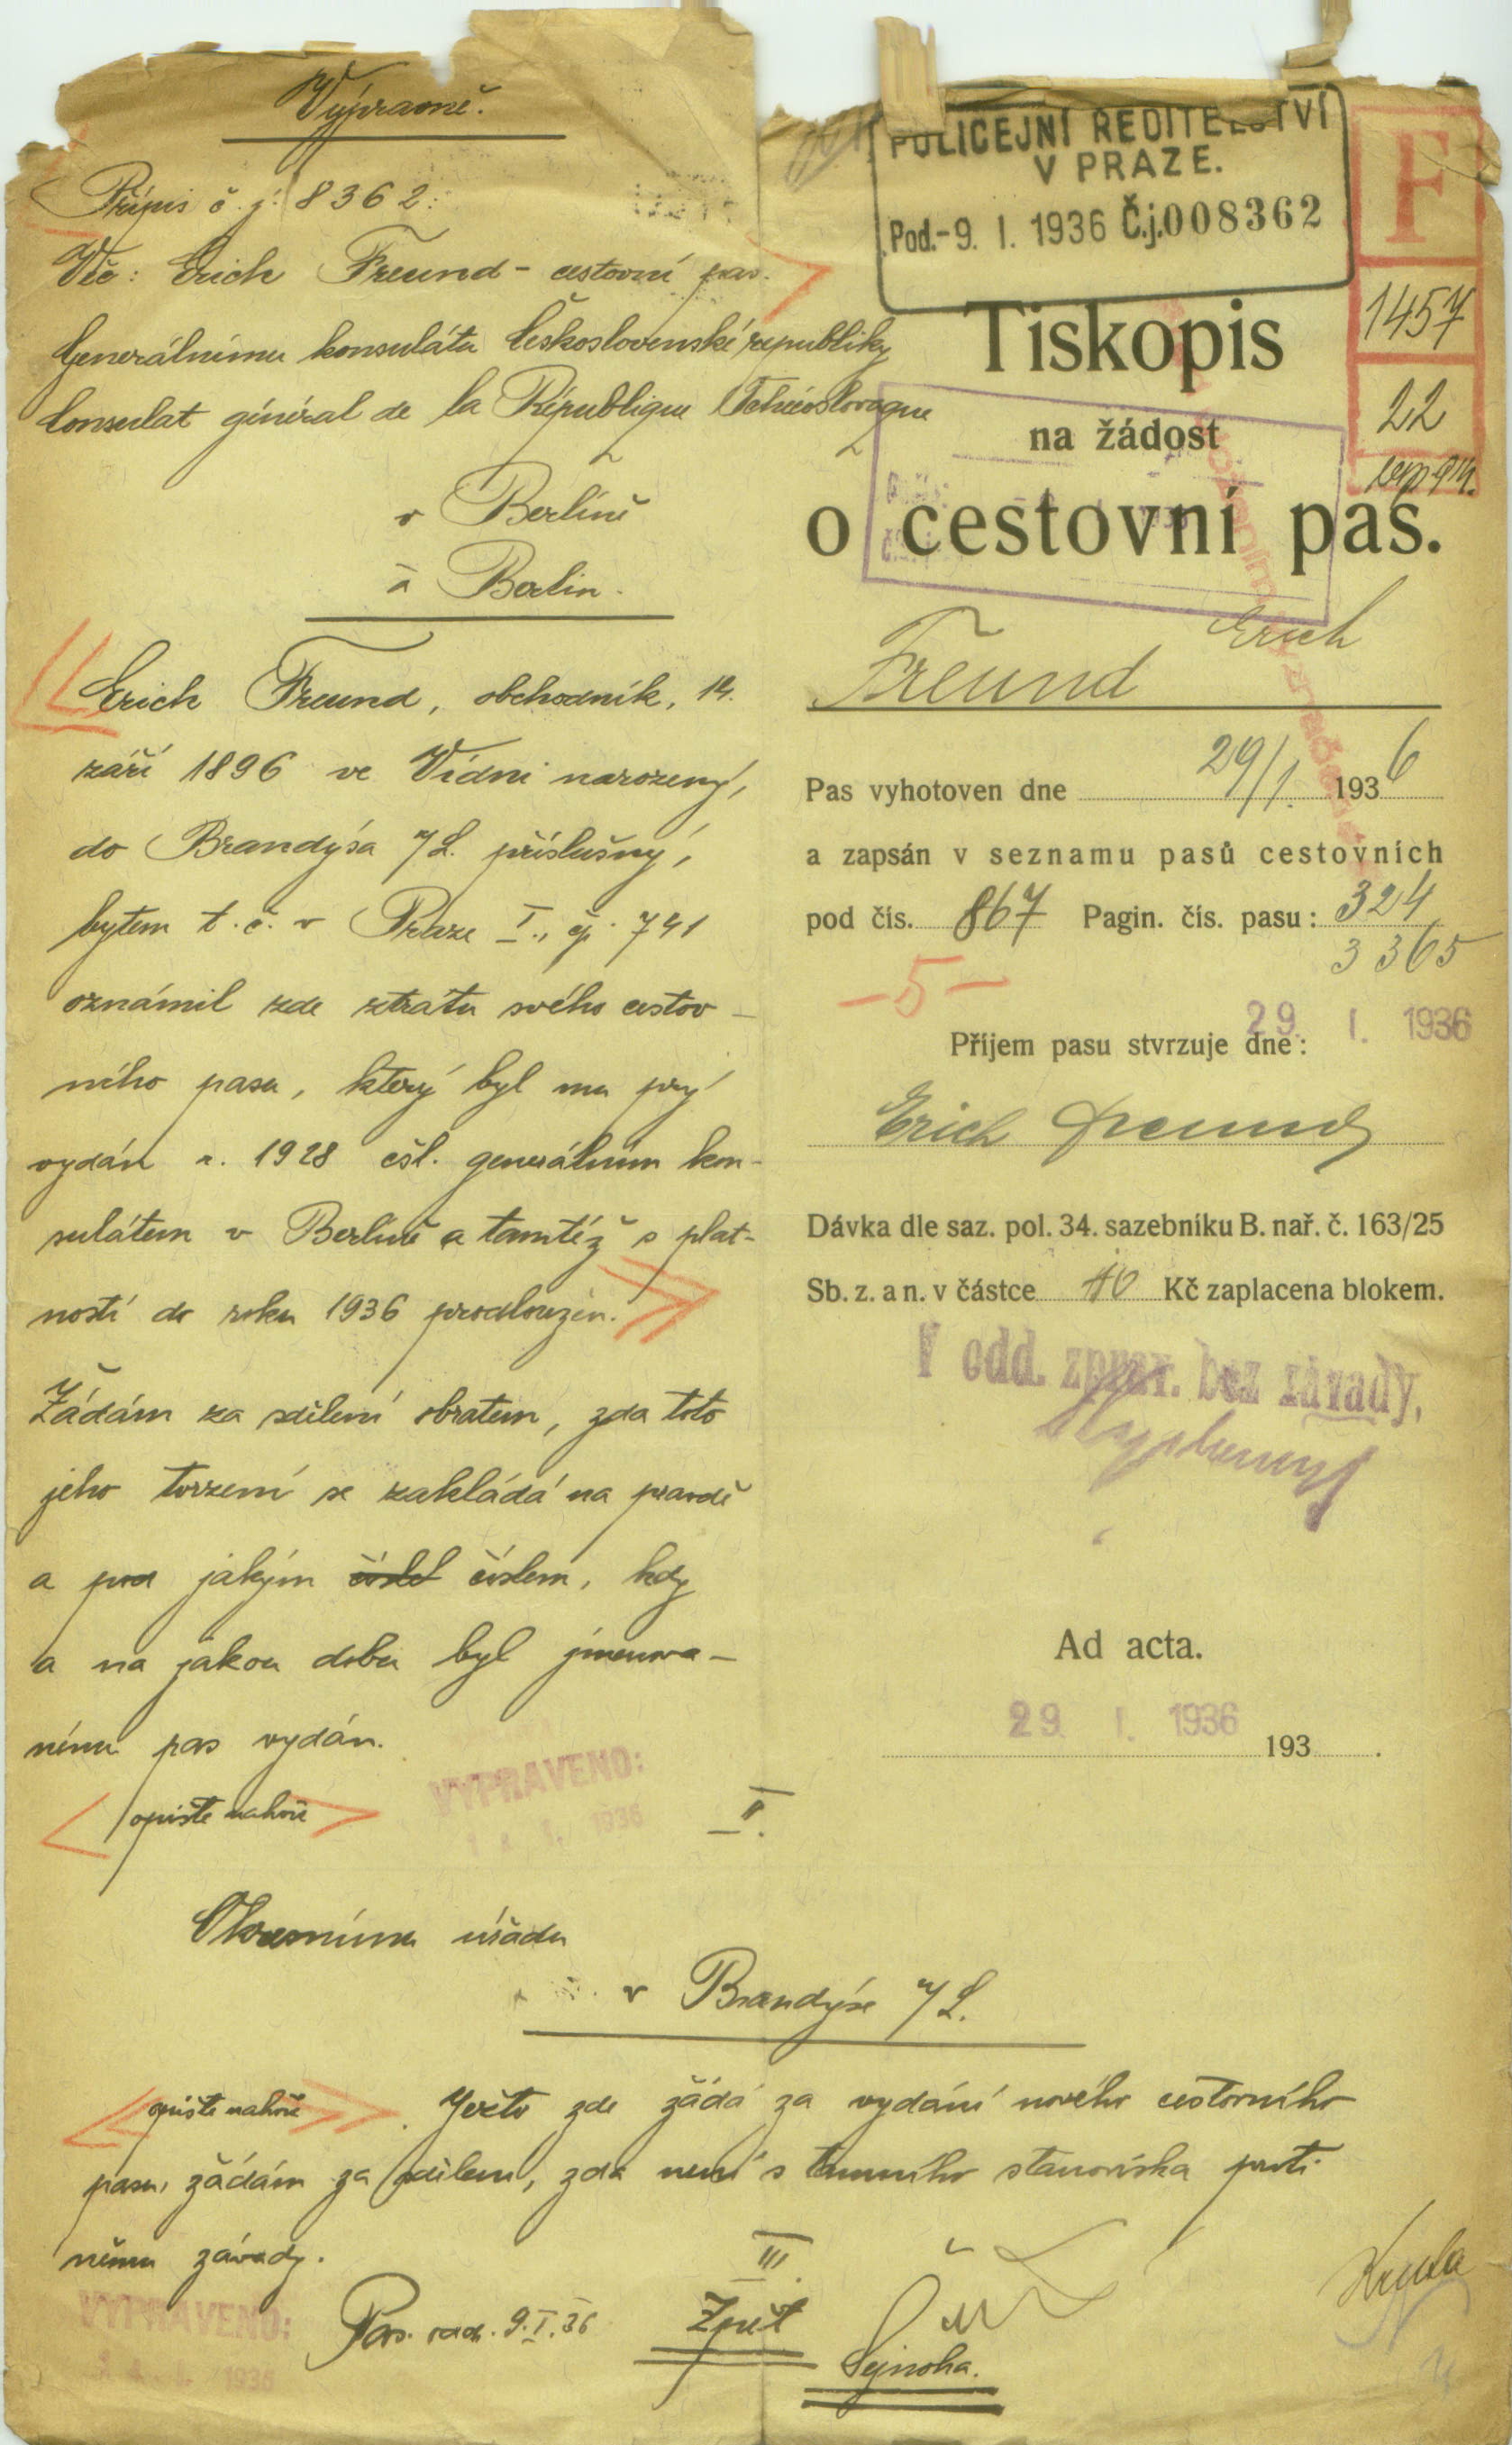 Výpravně.
Přípis č. j. 8362:
Věc: Erich Freund - cestovní pas.
Generálnímu konsulátu Československé republiky
Consulat général de la République Tchécoslovaque
v Berlíně
à Berlin.
Erich Freund, obchodník, 14.
září 1896 ve Vídni narozený,
do Brandýsa n/L. příslušný,
bytem t. č. v Praze I., čp. 741
oznámil zde ztrátu svého cestov-
ního pasu, který byl mu prý
vydán r. 1928 čsl. generálním kon-
sulátem v Berlíně a tamtéž s plat-
ností do roku 1936 prodloužen.
Žádám za sdělení obratem, zda toto
jeho tvrzení se zakládá na pravdě
a pod jakým číslem, kdy
a na jakou dobu byl jmenova-
nému pas vydán.
opište nahoře
VYPRAVENO:
1936
II.
Okresnímu úřadu
v Brandýse n/L.
opište nahoře Ježto zde žádá za vydání nového cestovního
pasu, žádám za sdělení, zda není s tamního stanoviska proti
němu závady.
VYPRAVENO:
Pas. 9.I.36
III.
Zpět
Sejnoha.
POLICEJNÍ ŘEDITELSTVÍ
V PRAZE.
Pod.-9. I. 1936 Č.j.008362
F
1457
22
Tiskopis
na žádost
o cestovní pas.
Freund Erich
Pas vyhotoven dne 29/1. 1936
a zapsán v seznamu pasů cestovních
pod čís. 867 Pagin. čís. pasu: 324
3365
-5-
Příjem pasu stvrzuje dne: 29. I. 1936
Erich Freund
Dávka dle saz. pol. 34. sazebníku B. nař. č. 163/25
Sb. z. a n. v částce 10 Kč zaplacena blokem.
V odd. zprav. bez závady.
Ad acta.
29. I. 1936 193 .